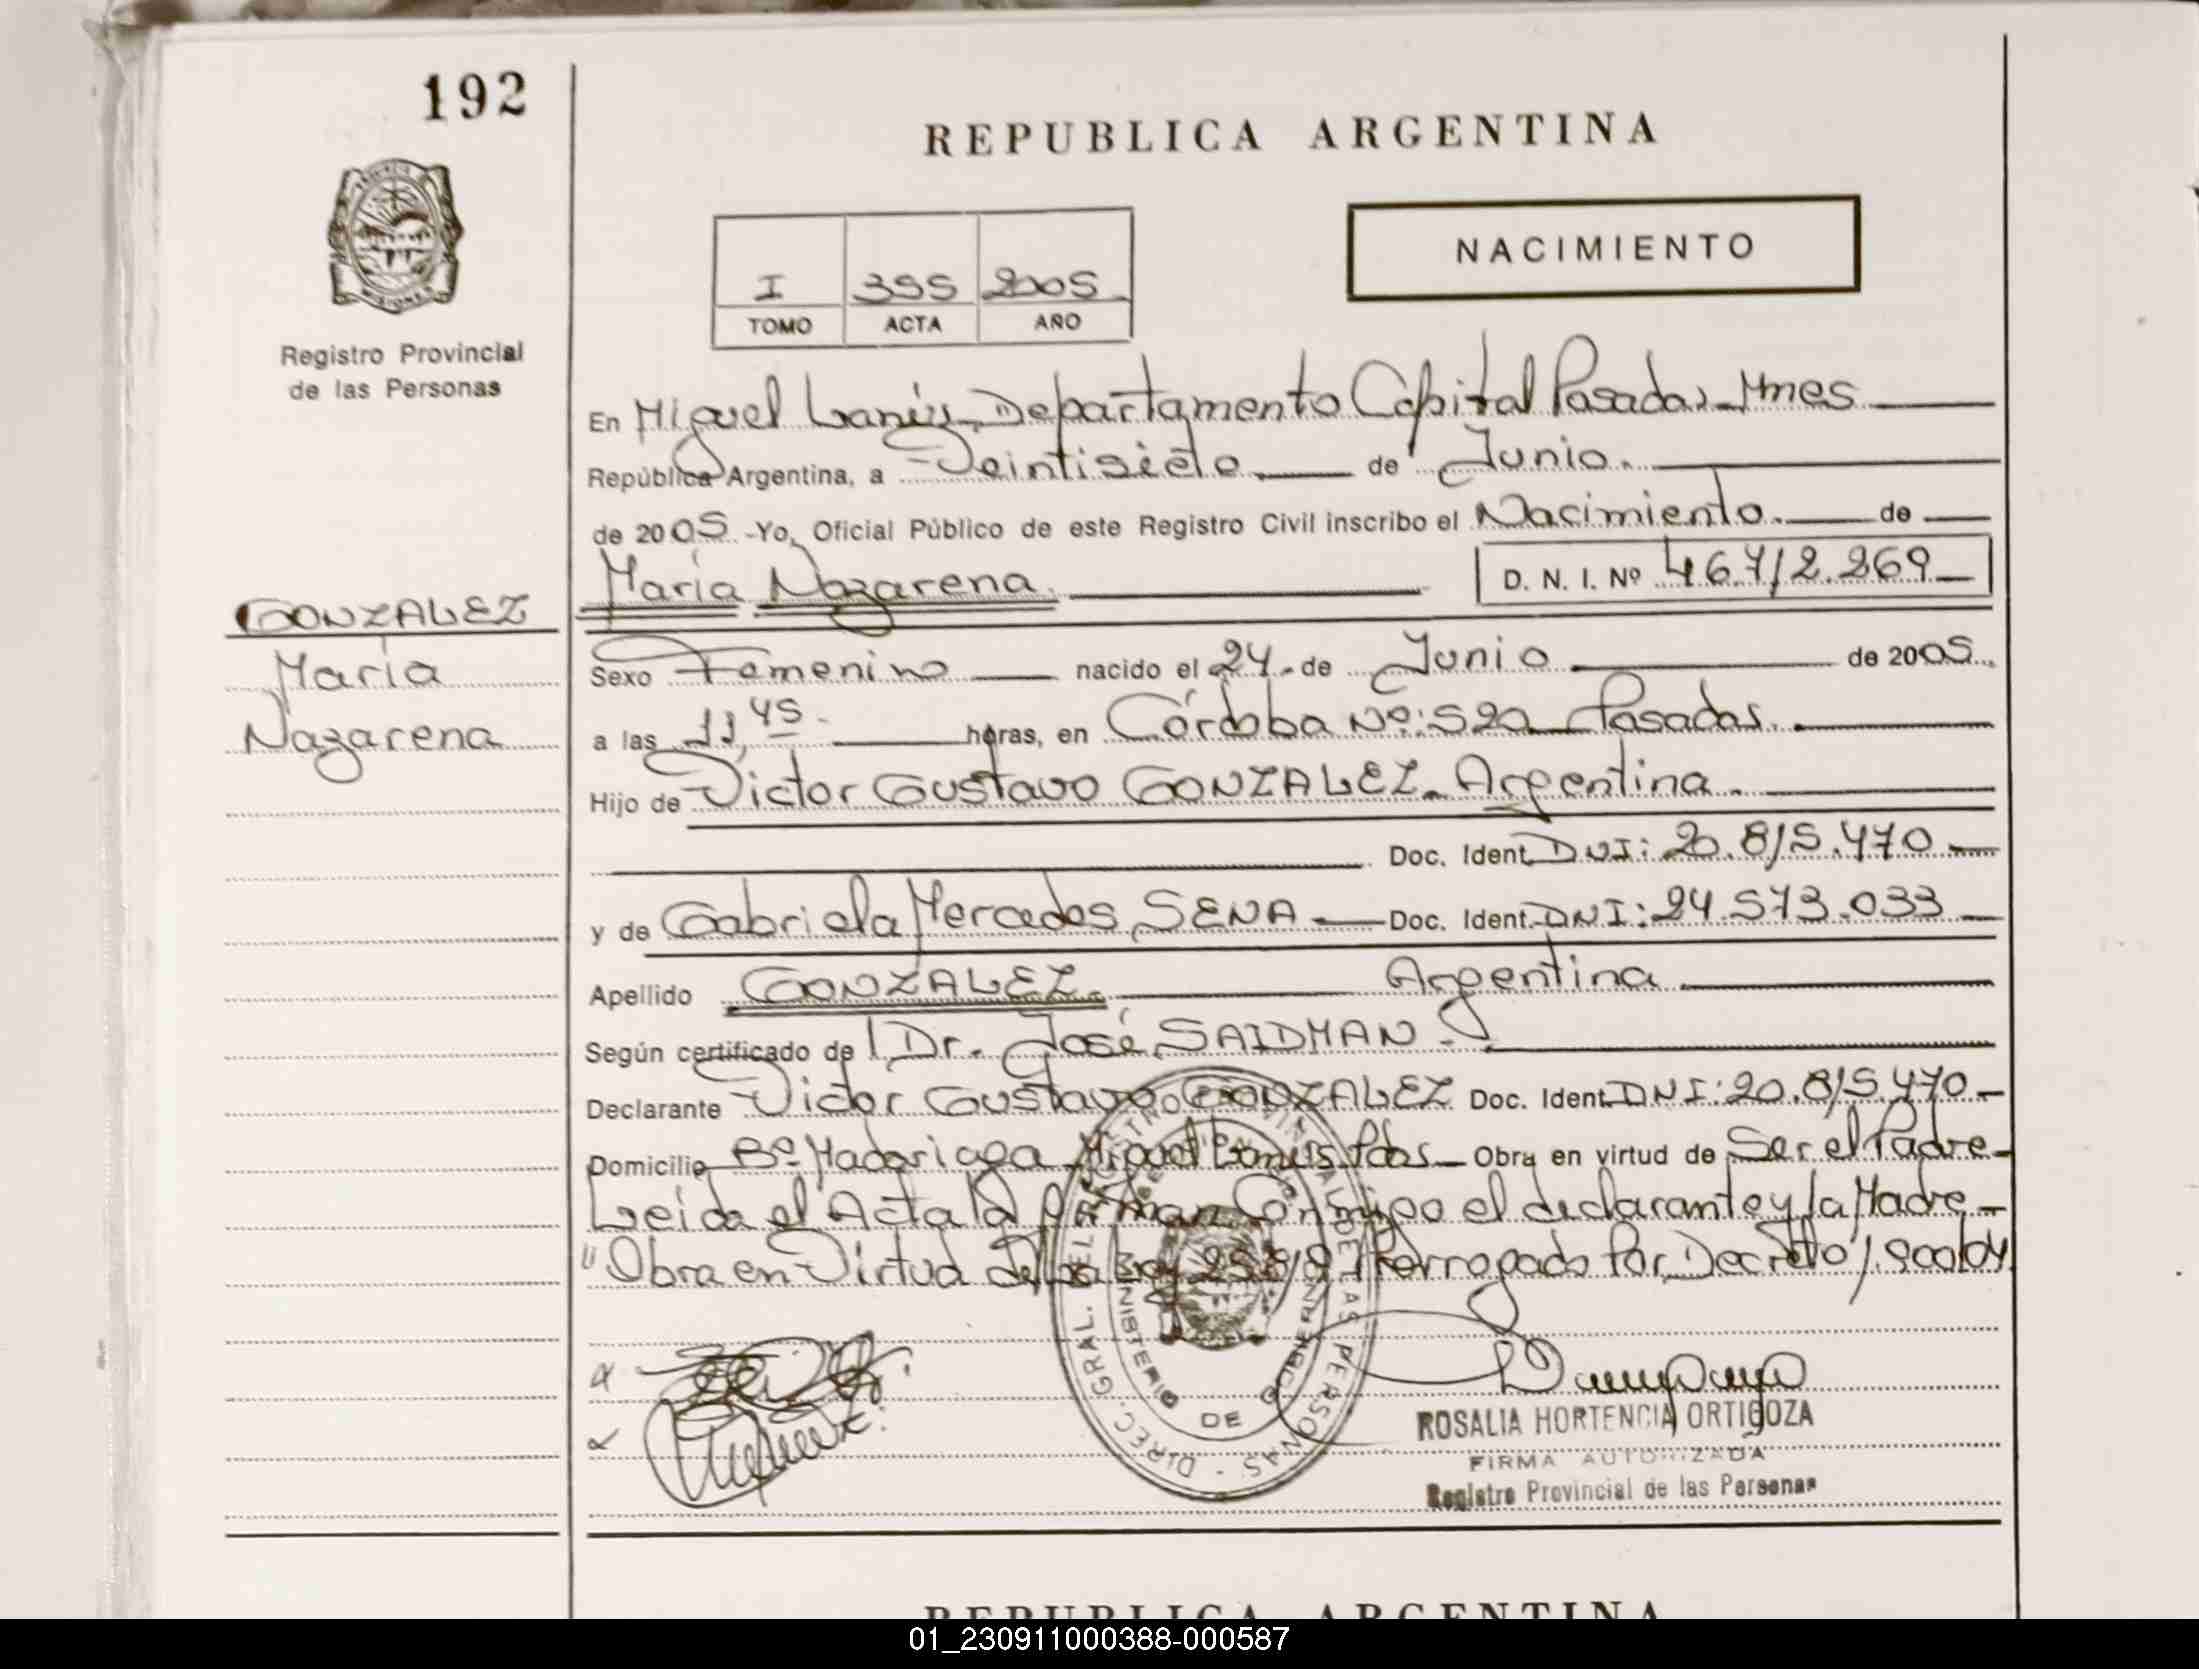 192
REPUBLICA ARGENTINA
NACIMIENTO
I 355 2005
TOMO ACTA AÑO
Registro Provincial
de las Personas
En Miguel Lanús, Departamento Capital Posadas Mnes
República Argentina, a Veintisiete de Junio.
de 2005 -Yo, Oficial Público de este Registro Civil inscribo el Nacimiento. de
María Nazarena. D. N. I. Nº
GONZALEZ
María
Nazarena
Sexo Femenino nacido el 24. de Junio de 2005.
a las 11,45. horas, en Córdoba Nº: 520 Posadas.
Hijo de Victor Gustavo GONZALEZ. Argentina.
Doc. Ident. DNI: 20.815.470
y de Gabriela Mercedes SENA Doc. Ident. DNI: 24.573.033
Apellido GONZALEZ. Argentina
Según certificado de Dr. José SAIDMAN.
Declarante Victor Gustavo GONZALEZ Doc. Ident. DNI: 20.815.470
Domicilio Bº Madariaga Miguel Lanús Pdas Obra en virtud de Ser el Padre
Leída el Acta la firman Conmigo el declarante y la Madre
"Obra en Virtud de la Ley 25.819 Prorrogado Por Decreto 1.900/04
DIREC. GRAL. DEL REGISTRO PROVINCIAL DE LAS PERSONAS
MINISTERIO DE GOBIERNO
ROSALIA HORTENCIA ORTIGOZA
FIRMA AUTORIZADA
Registro Provincial de las Personas
REPUBLICA ARGENTINA
01_230911000388-000587